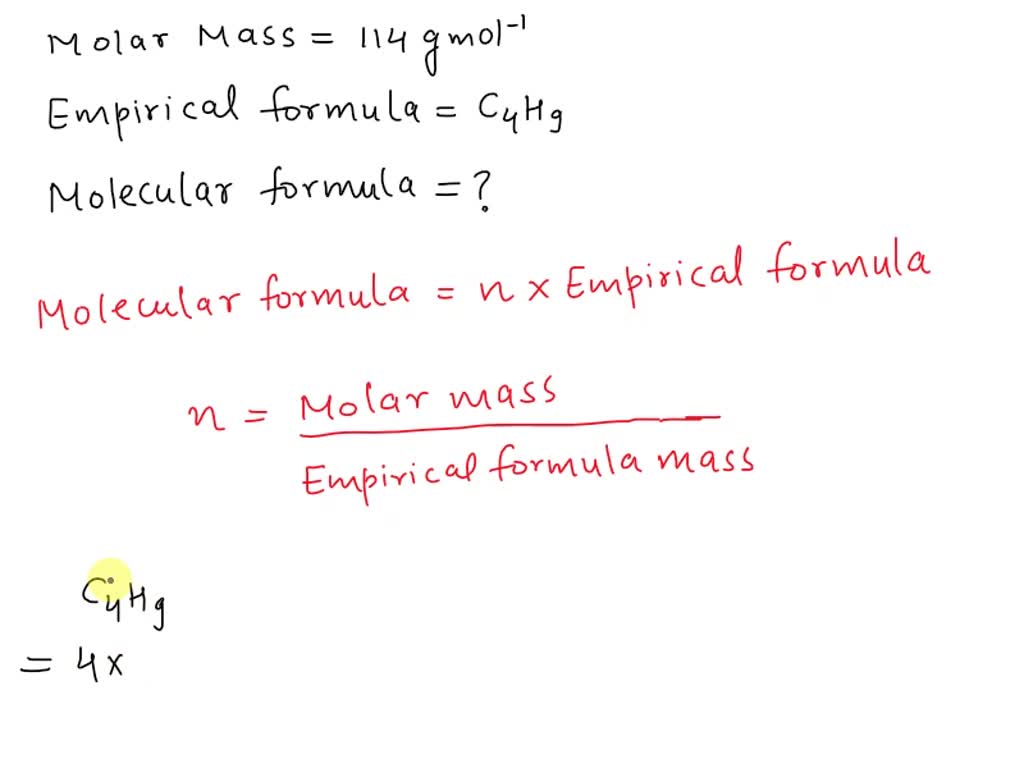 Molar Mass = 114 gmol⁻¹
Empirical formula = C₄H₉
Molecular formula = ?
Molecular formula = n × Empirical formula
n = Molar mass
Empirical formula mass
C₄H₉
= 4×